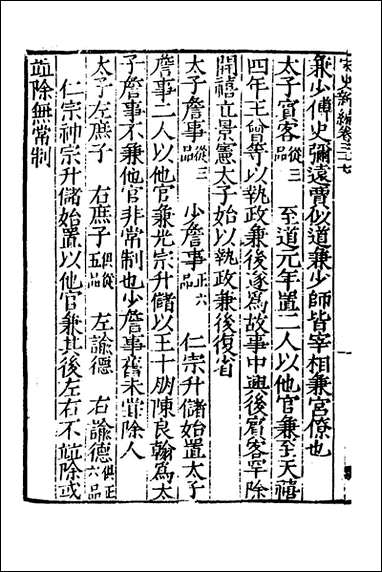 宋史新編卷三十七
兼少傅史彌遠賈似道兼少師皆宰相兼宮僚也
太子賓客 從三品 至道元年置二人以他官兼至天禧
四年王曾等以執政兼後遂爲故事中興後賓客罕除
開禧立景憲太子始以執政兼後復省
太子詹事 從三品 少詹事 正六品 仁宗升儲始置太子
詹事二人以他官兼光宗升儲以王十朋陳良翰爲太
子詹事不兼他官非常制也少詹事舊未嘗除人
太子左庶子 右庶子 俱從五品 左諭德 右諭德 俱正六品
仁宗神宗升儲始置以他官兼其後左右不竝除或
竝除無常制